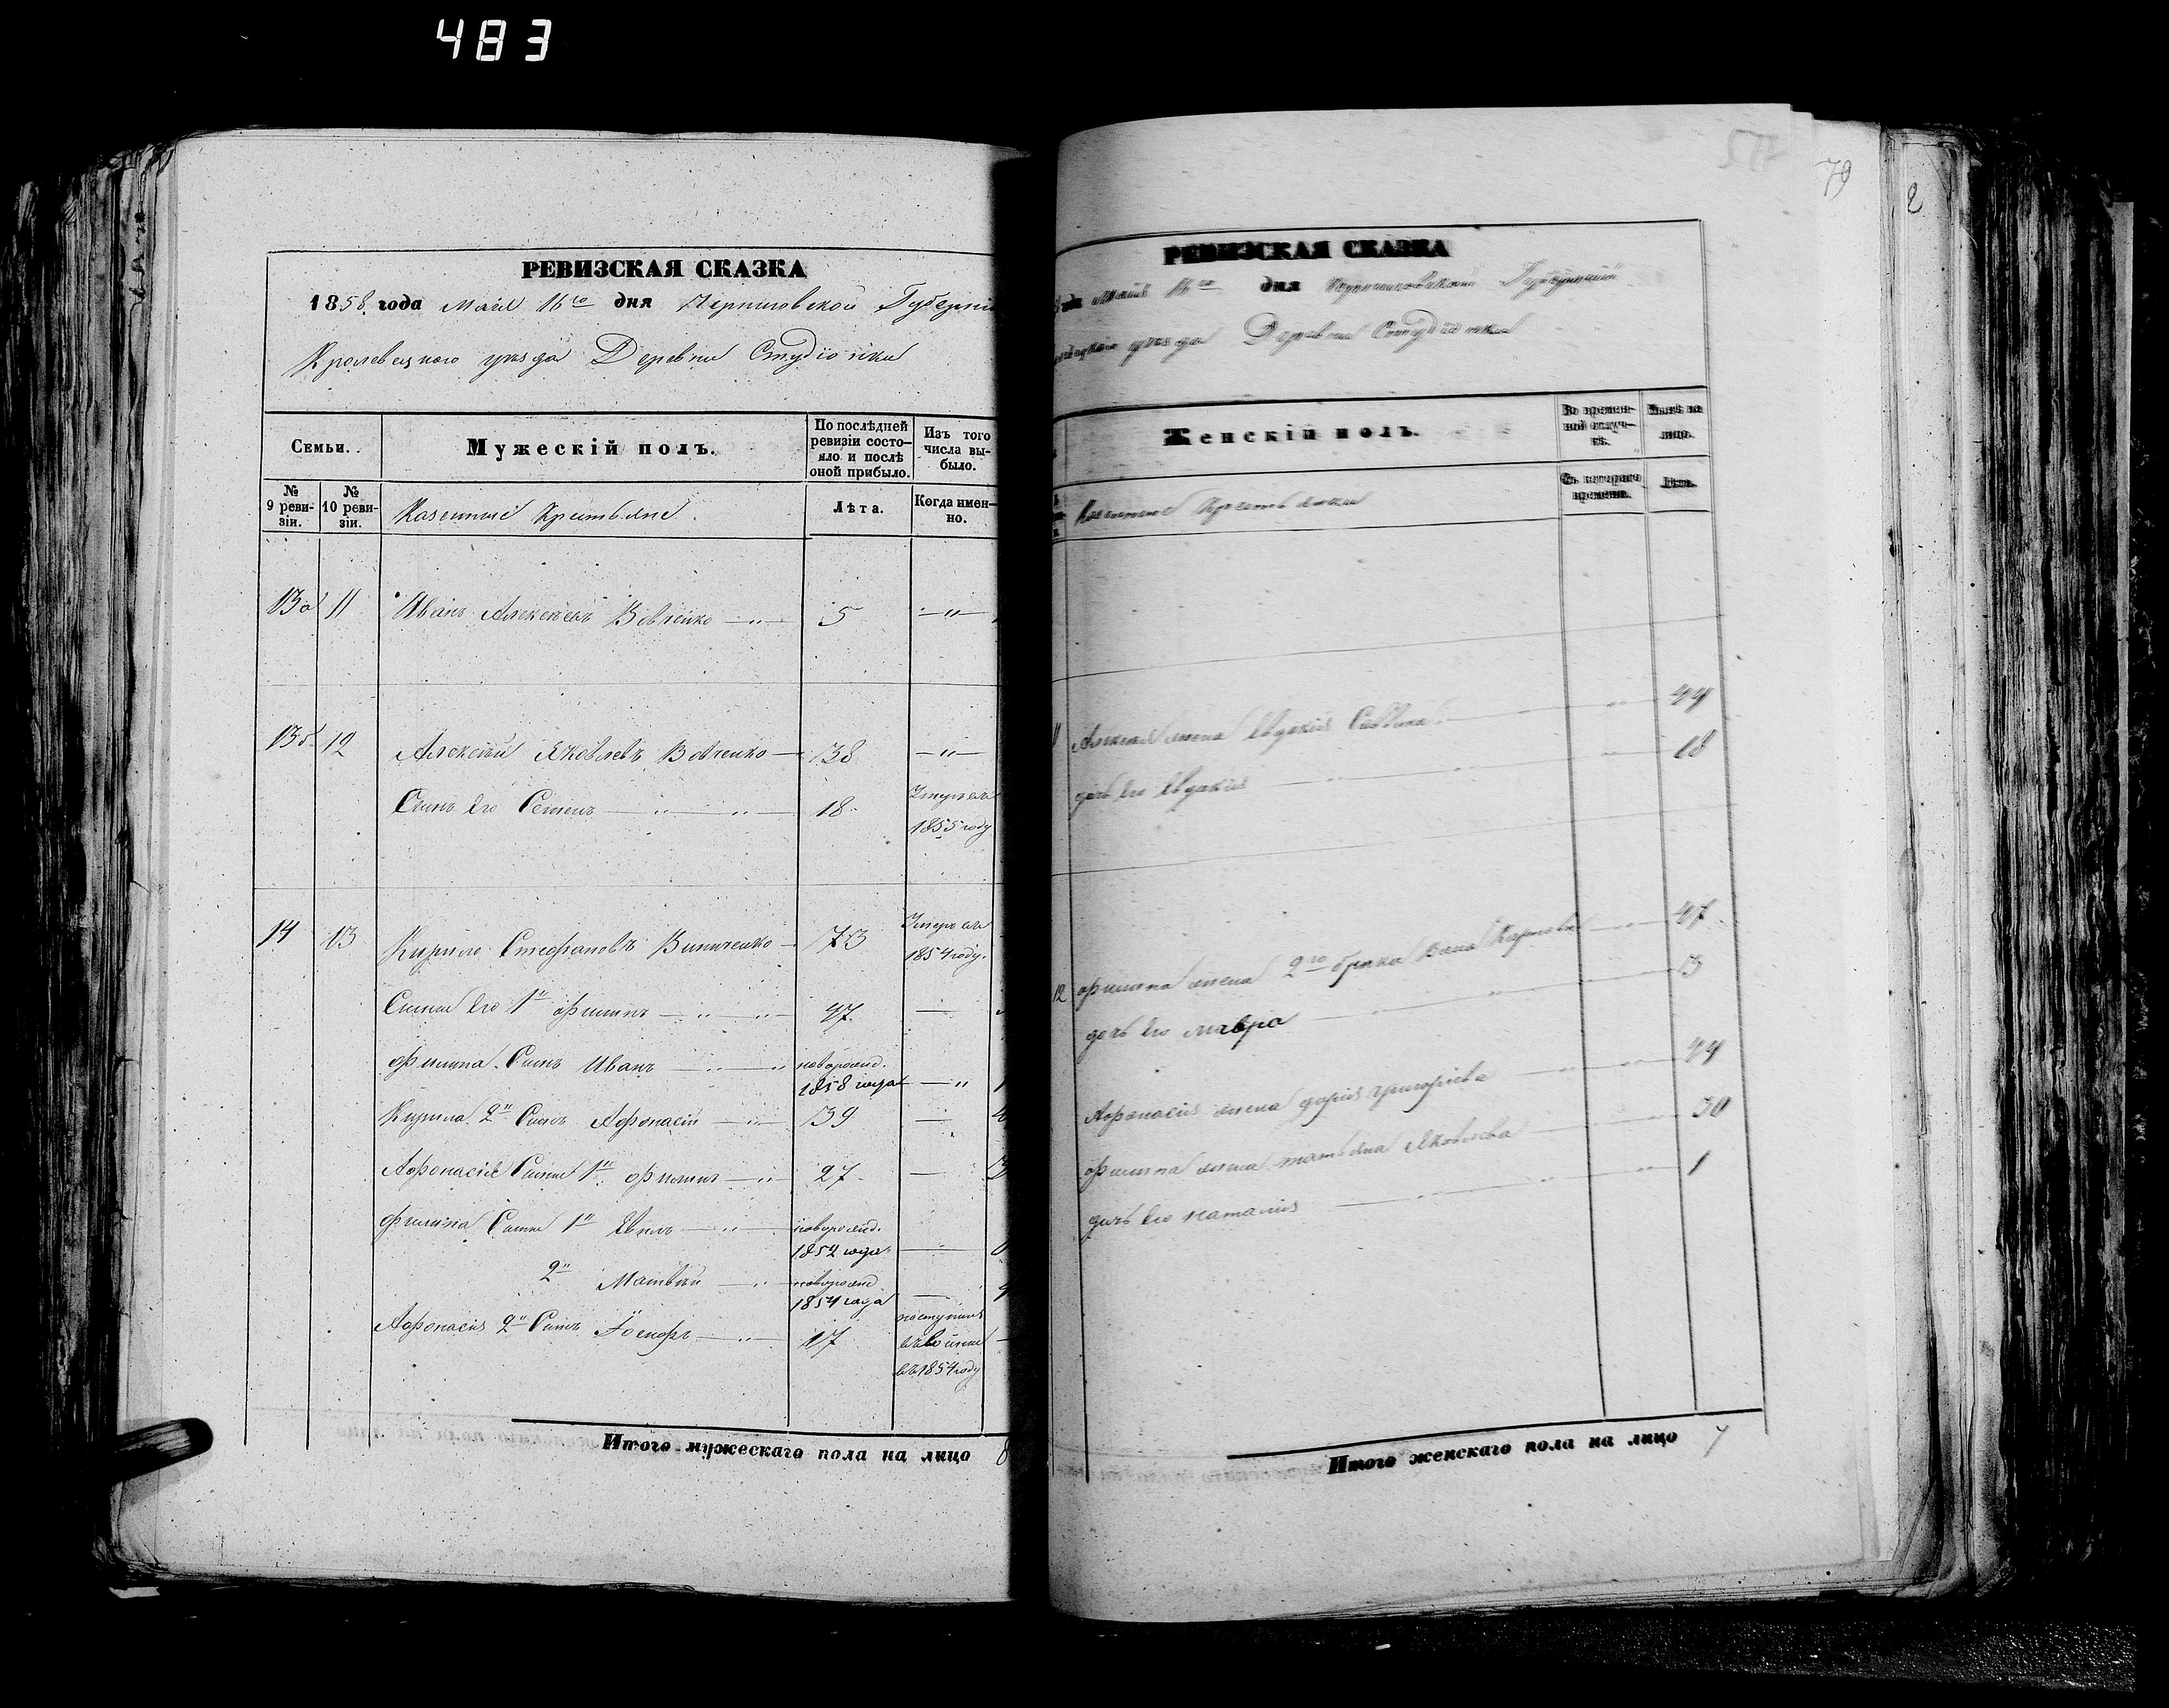 483
РЕВИЗСКАЯ СКАЗКА
1858 года Мая 16го дня Черниговской Губерніи
Кролевецкого уезда Деревни Студіонки
Семьи.
Мужескій полъ.
По послѣдней ревизіи состо-яло и послѣ оной прибыло.
Изъ того числа вы-было.
№ 9 реви-зіи.
№ 10 реви-зіи.
Казенные Крестьяне
Лѣта.
Когда имен-но.
13а 11 Иванъ Алексеевъ Вовченко 5
13б. 12 Алексѣй Яковлевъ Вовченко 38
Сынъ его Семенъ 18 Умеръ въ 1855 году
14 13 Кирило Стефановъ Виниченко 73 Умеръ въ 1854 году.
Сыны его 1й Филипъ 47
Филипа Сынъ Иванъ новорожд. 1858 года 1
Кирила 2й Сынъ Афонасій 39
Афонасія Сыны 1й Филипъ 27
Филипа Сыны 1й новорожд. 1852 года
2й Матвѣй новорожд. 1854 года
Афонасія 2й Сынъ Іосифъ 17 поступилъ въ 1854 году
Итого мужескаго пола на лицо 8
79
2
РЕВИЗСКАЯ СКАЗКА
года Мая 16го дня Черниговской Губерніи
уезда Деревни Студіонки
Женскій полъ.
Во времен-ной отлуч-кѣ.
Нынѣ на лицо.
Казенные Крестьянки
Съ котораго времени.
Лѣта.
11 Алексея жена Евдокія Саввина 44
дочь его Евдокія 18
12 Филипа жена 2го брака 47
дочь его Мавра 13
Афонасія жена Дарія Григоріева 44
Филипа жена Татьяна Яковлева 30
дочь его Наталія 1
Итого женскаго пола на лицо 7